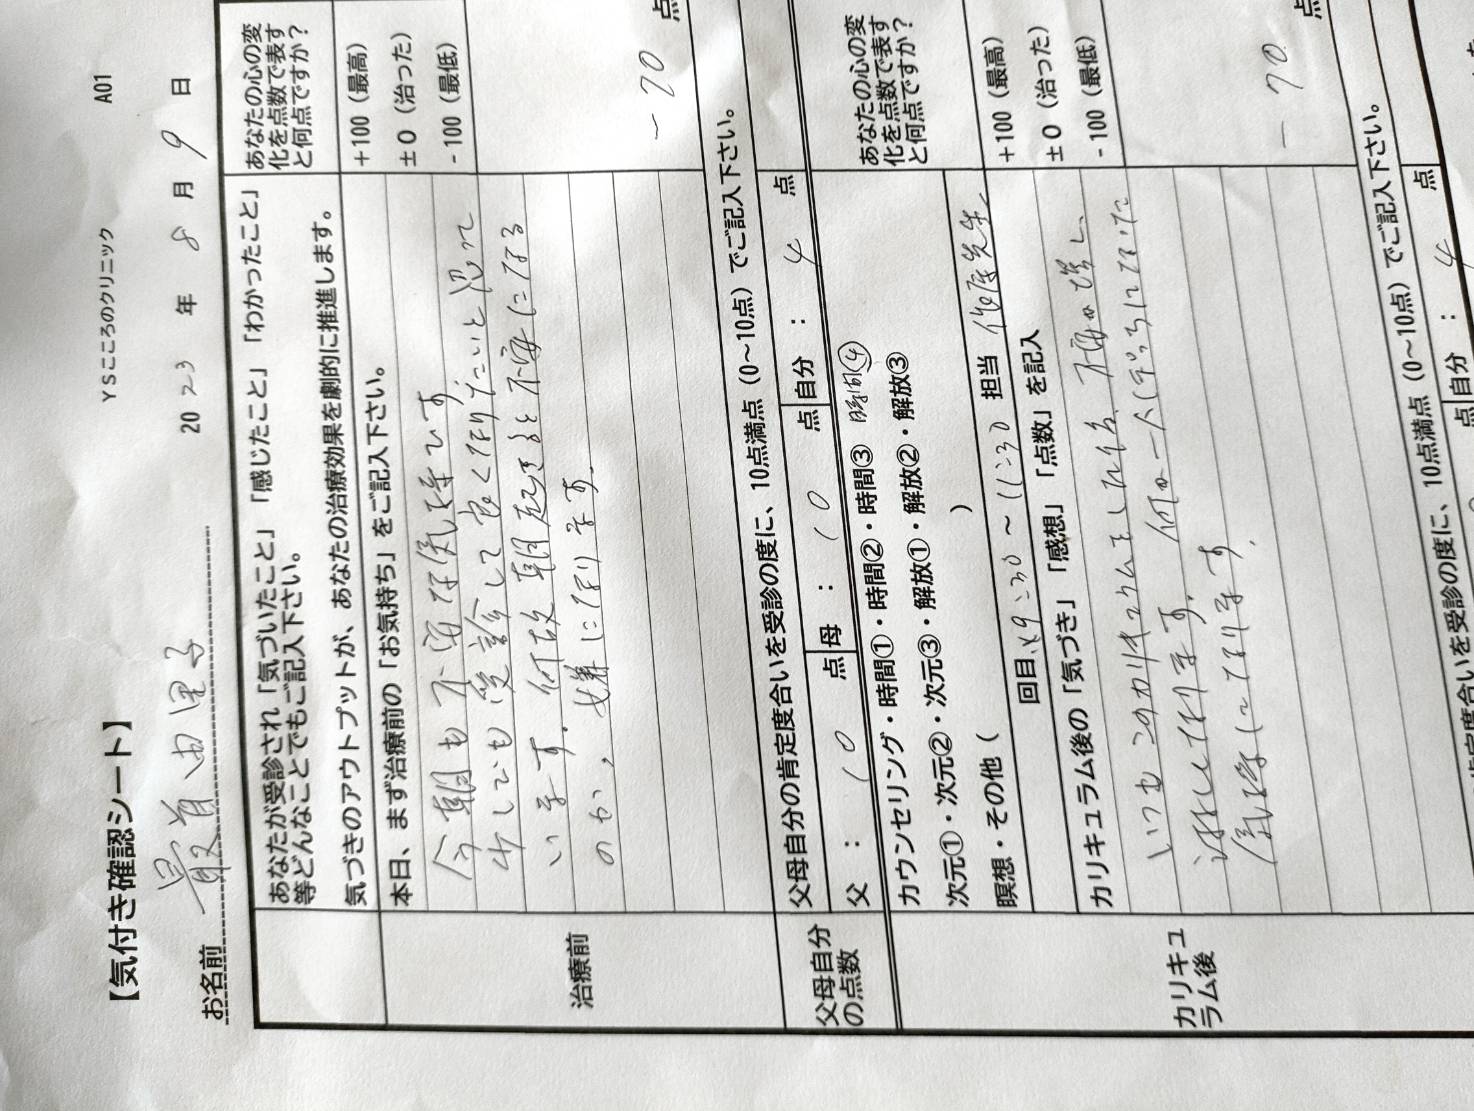 YSこころのクリニック A01
【気付き確認シート】 2023年8月9日
お名前 最首由里子
あなたが受診され「気づいたこと」「感じたこと」「わかったこと」
等どんなことでもご記入下さい。
気づきのアウトプットが、あなたの治療効果を劇的に推進します。
あなたの心の変
化を点数で表す
と何点ですか？
治療前
本日、まず治療前の「お気持ち」をご記入下さい。
今朝も不安な気持ちです
少しでも受診して良くなりたいと思って
います。何故朝起きると不安になる
のか、嫌になります。
+100（最高）
±0（治った）
-100（最低）
-70 点
父母自分
の点数
父母自分の肯定度合いを受診の度に、10点満点（0～10点）でご記入下さい。
父： 10 点 母： 10 点 自分： 4 点
カリキュ
ラム後
カウンセリング・時間①・時間②・時間③ 時間④
次元①・次元②・次元③・解放①・解放②・解放③
瞑想・その他（ ）
回目 9:30～11:30 担当 先生
カリキュラム後の「気づき」「感想」「点数」を記入
いつもこのカリキュラムをした後、不安が増し、
なります。何か一人
気持になります。
あなたの心の変
化を点数で表す
と何点ですか？
+100（最高）
±0（治った）
-100（最低）
-70 点
父母自分の肯定度合いを受診の度に、10点満点（0～10点）でご記入下さい。
点 自分： 4 点
肯定度合いを受診の度に、10点満点